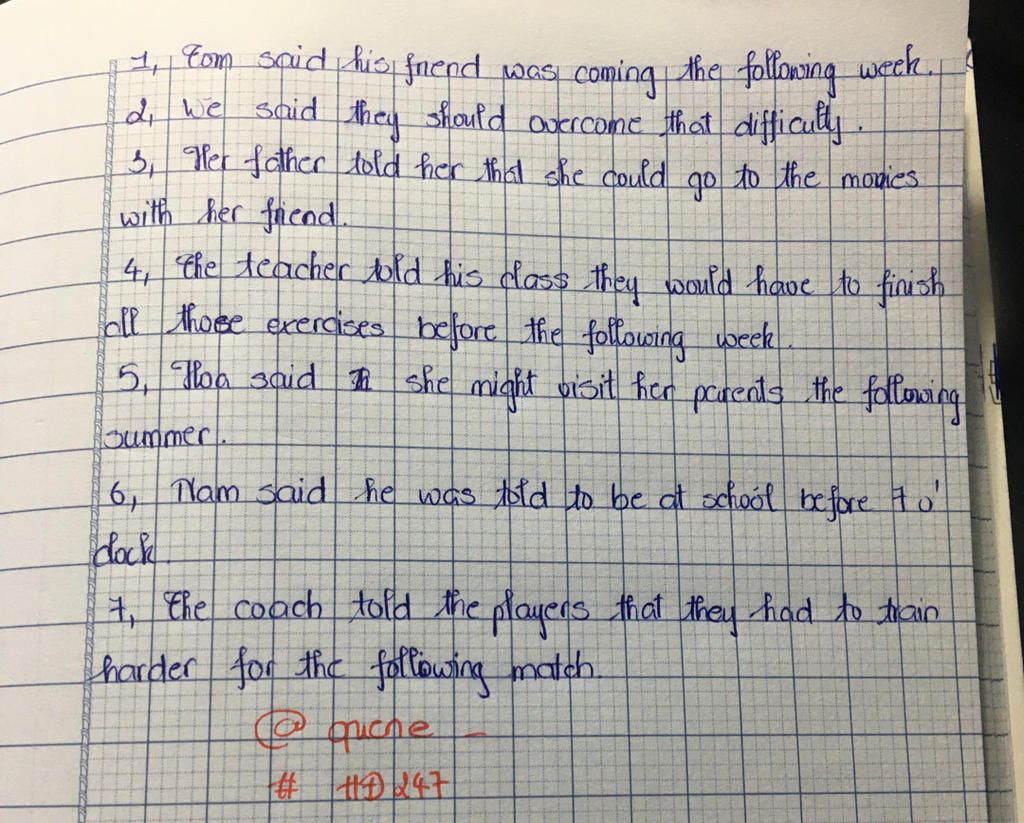 1, Tom said his friend was coming the following week.
2, We said they should overcome that difficulty.
3, Her father told her that she could go to the movies
with her friend.
4, The teacher told his class they would have to finish
all those exercises before the following week.
5, Hoa said she might visit her parents the following
summer.
6, Nam said he was told to be at school before 7 o'
clock.
7, The coach told the players that they had to train
harder for the following match.
@ qucne _
# HD247